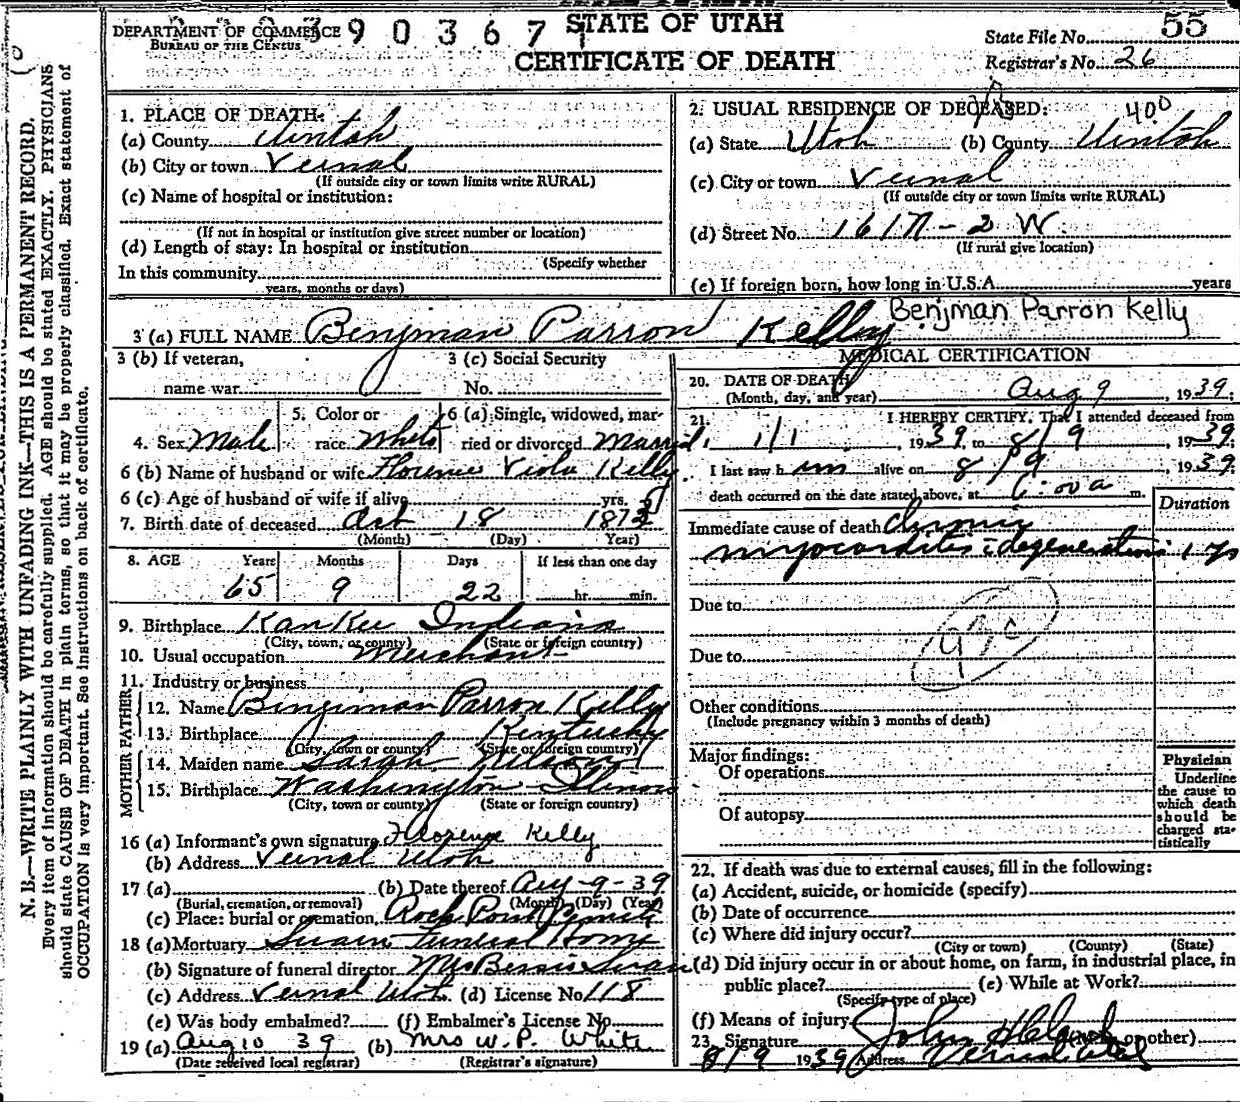 DEPARTMENT OF COMMERCE
BUREAU OF THE CENSUS
390367
STATE OF UTAH
CERTIFICATE OF DEATH
State File No. 55
Registrar's No. 26
N. B.—WRITE PLAINLY WITH UNFADING INK—THIS IS A PERMANENT RECORD.
Every item of information should be carefully supplied. AGE should be stated EXACTLY. PHYSICIANS
should state CAUSE OF DEATH in plain terms, so that it may be properly classified. Exact statement of
OCCUPATION is very important. See instructions on back of certificate.
1. PLACE OF DEATH:
(a) County Uintah
(b) City or town Vernal
(If outside city or town limits write RURAL)
(c) Name of hospital or institution:
(If not in hospital or institution give street number or location)
(d) Length of stay: In hospital or institution
(Specify whether
In this community
years, months or days)
2. USUAL RESIDENCE OF DECEASED: 400
(a) State Utah (b) County Uintah
(c) City or town Vernal
(If outside city or town limits write RURAL)
(d) Street No. 161 N - 2 W.
(If rural give location)
(e) If foreign born, how long in U.S.A. years
3 (a) FULL NAME Benjman Parron Kelly Benjman Parron Kelly
3 (b) If veteran,
name war
3 (c) Social Security
No.
4. Sex Male
5. Color or
race White
6 (a) Single, widowed, mar-
ried or divorced Married
6 (b) Name of husband or wife Florence Viola Kelly
6 (c) Age of husband or wife if alive yrs.
7. Birth date of deceased Oct 18 1873
(Month) (Day) Year)
8. AGE Years Months Days If less than one day
65 9 22 hr. min.
9. Birthplace KanKee Indiana
(City, town, or county) (State or foreign country)
10. Usual occupation Merchant
11. Industry or business
FATHER
12. Name Benjiman Parron Kelly
13. Birthplace Kentucky
(City, town or county) (State or foreign country)
MOTHER
14. Maiden name Sarah Nelson
15. Birthplace Washington Illinois
(City, town or county) (State or foreign country)
16 (a) Informant's own signature Florence Kelly
(b) Address Vernal Utah
17 (a) (b) Date thereof Aug-9-39
(Burial, cremation, or removal) (Month) (Day) (Year)
(c) Place: burial or cremation Rock Point
18 (a) Mortuary Swain Funeral Home
(b) Signature of funeral director Mrs Bessie Swain
(c) Address Vernal Utah (d) License No. 118
(e) Was body embalmed? (f) Embalmer's License No.
19 (a) Aug 10 39 (b) Mrs W. P. White
(Date received local registrar) (Registrar's signature)
MEDICAL CERTIFICATION
20. DATE OF DEATH
(Month, day, and year) Aug 9, 1939;
21. I HEREBY CERTIFY, That I attended deceased from
1/1, 1939 to 8/9, 1939;
I last saw him alive on 8/9, 1939;
death occurred on the date stated above, at 6:00 a m.
Duration
Immediate cause of death Chronic
myocarditis c degeneration 1 yr
Due to
Due to
Other conditions
(Include pregnancy within 3 months of death)
Major findings:
Of operations
Of autopsy
Physician
Underline
the cause to
which death
should be
charged sta-
tistically
22. If death was due to external causes, fill in the following:
(a) Accident, suicide, or homicide (specify)
(b) Date of occurrence
(c) Where did injury occur?
(City or town) (County) (State)
(d) Did injury occur in or about home, on farm, in industrial place, in
public place? (e) While at Work?
(Specify type of place)
(f) Means of injury
23. Signature John or other)
8/9 1939 Address Vernal Utah